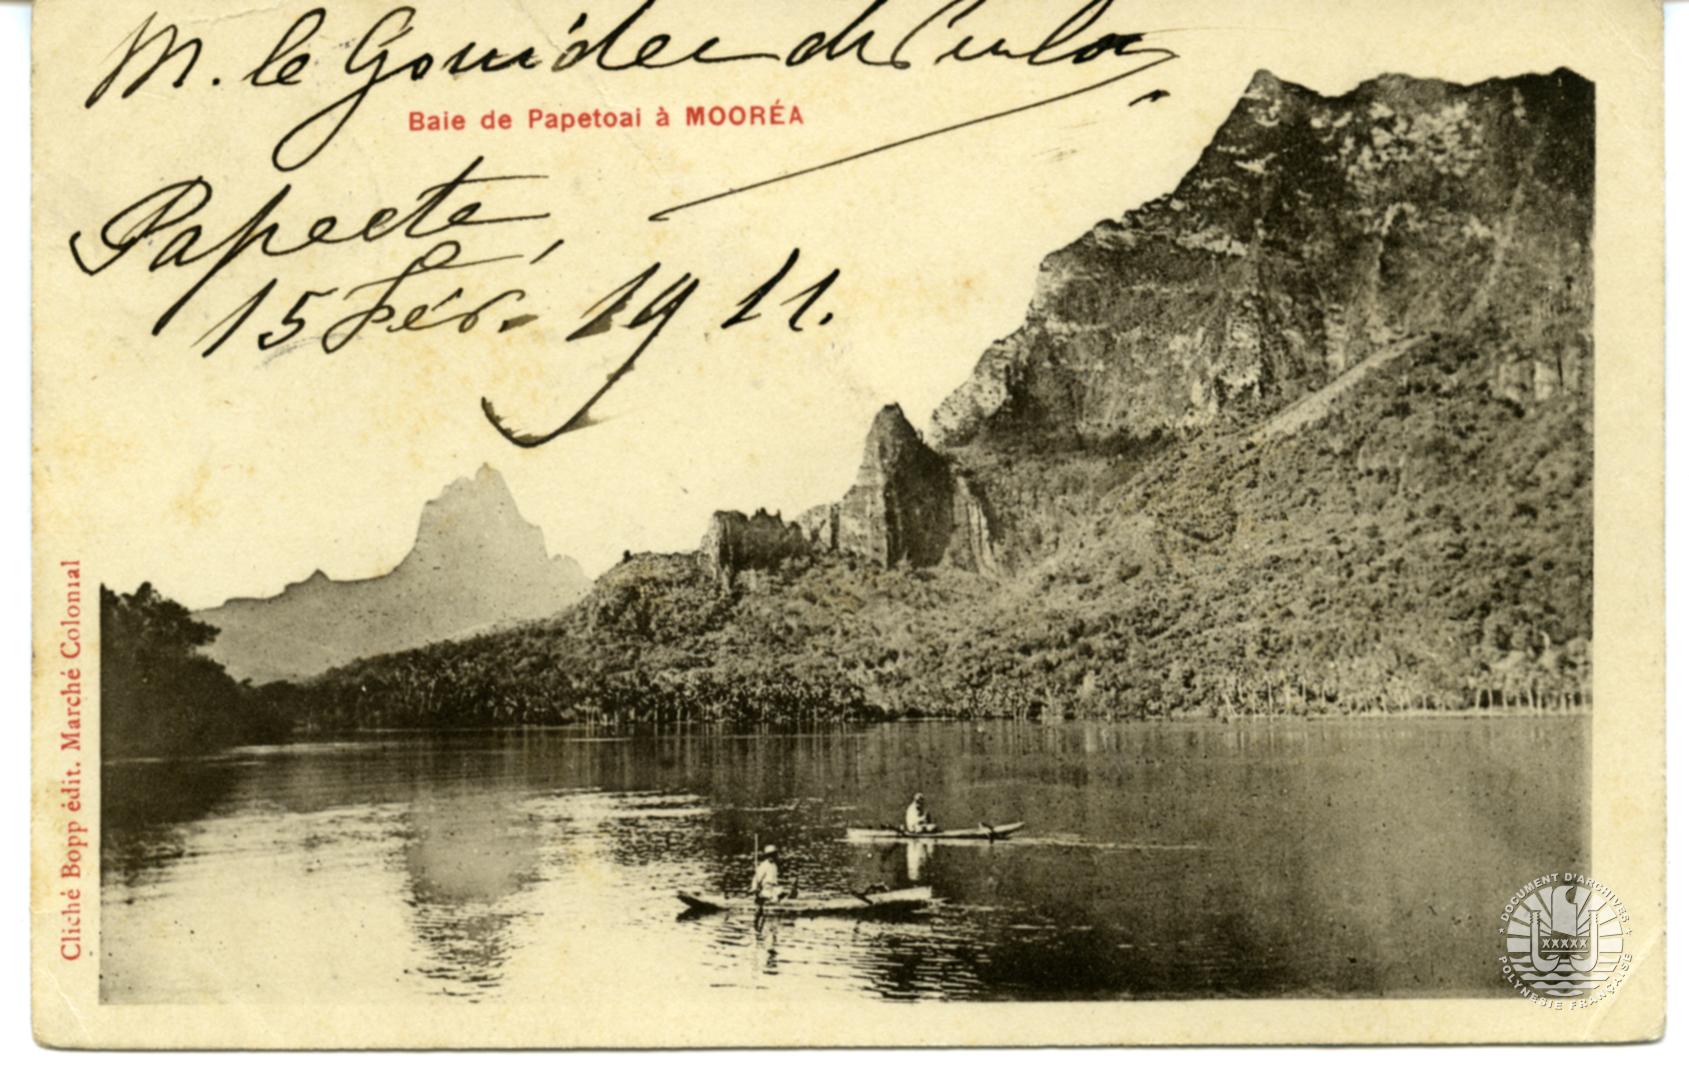 M. le Gouidec de Penlan
Baie de Papetoai à MOORÉA
Papeete
le
15 Fév. 1911.
Cliché Bopp édit. Marché Colonial
DOCUMENT D'ARCHIVES
POLYNESIE FRANÇAISE